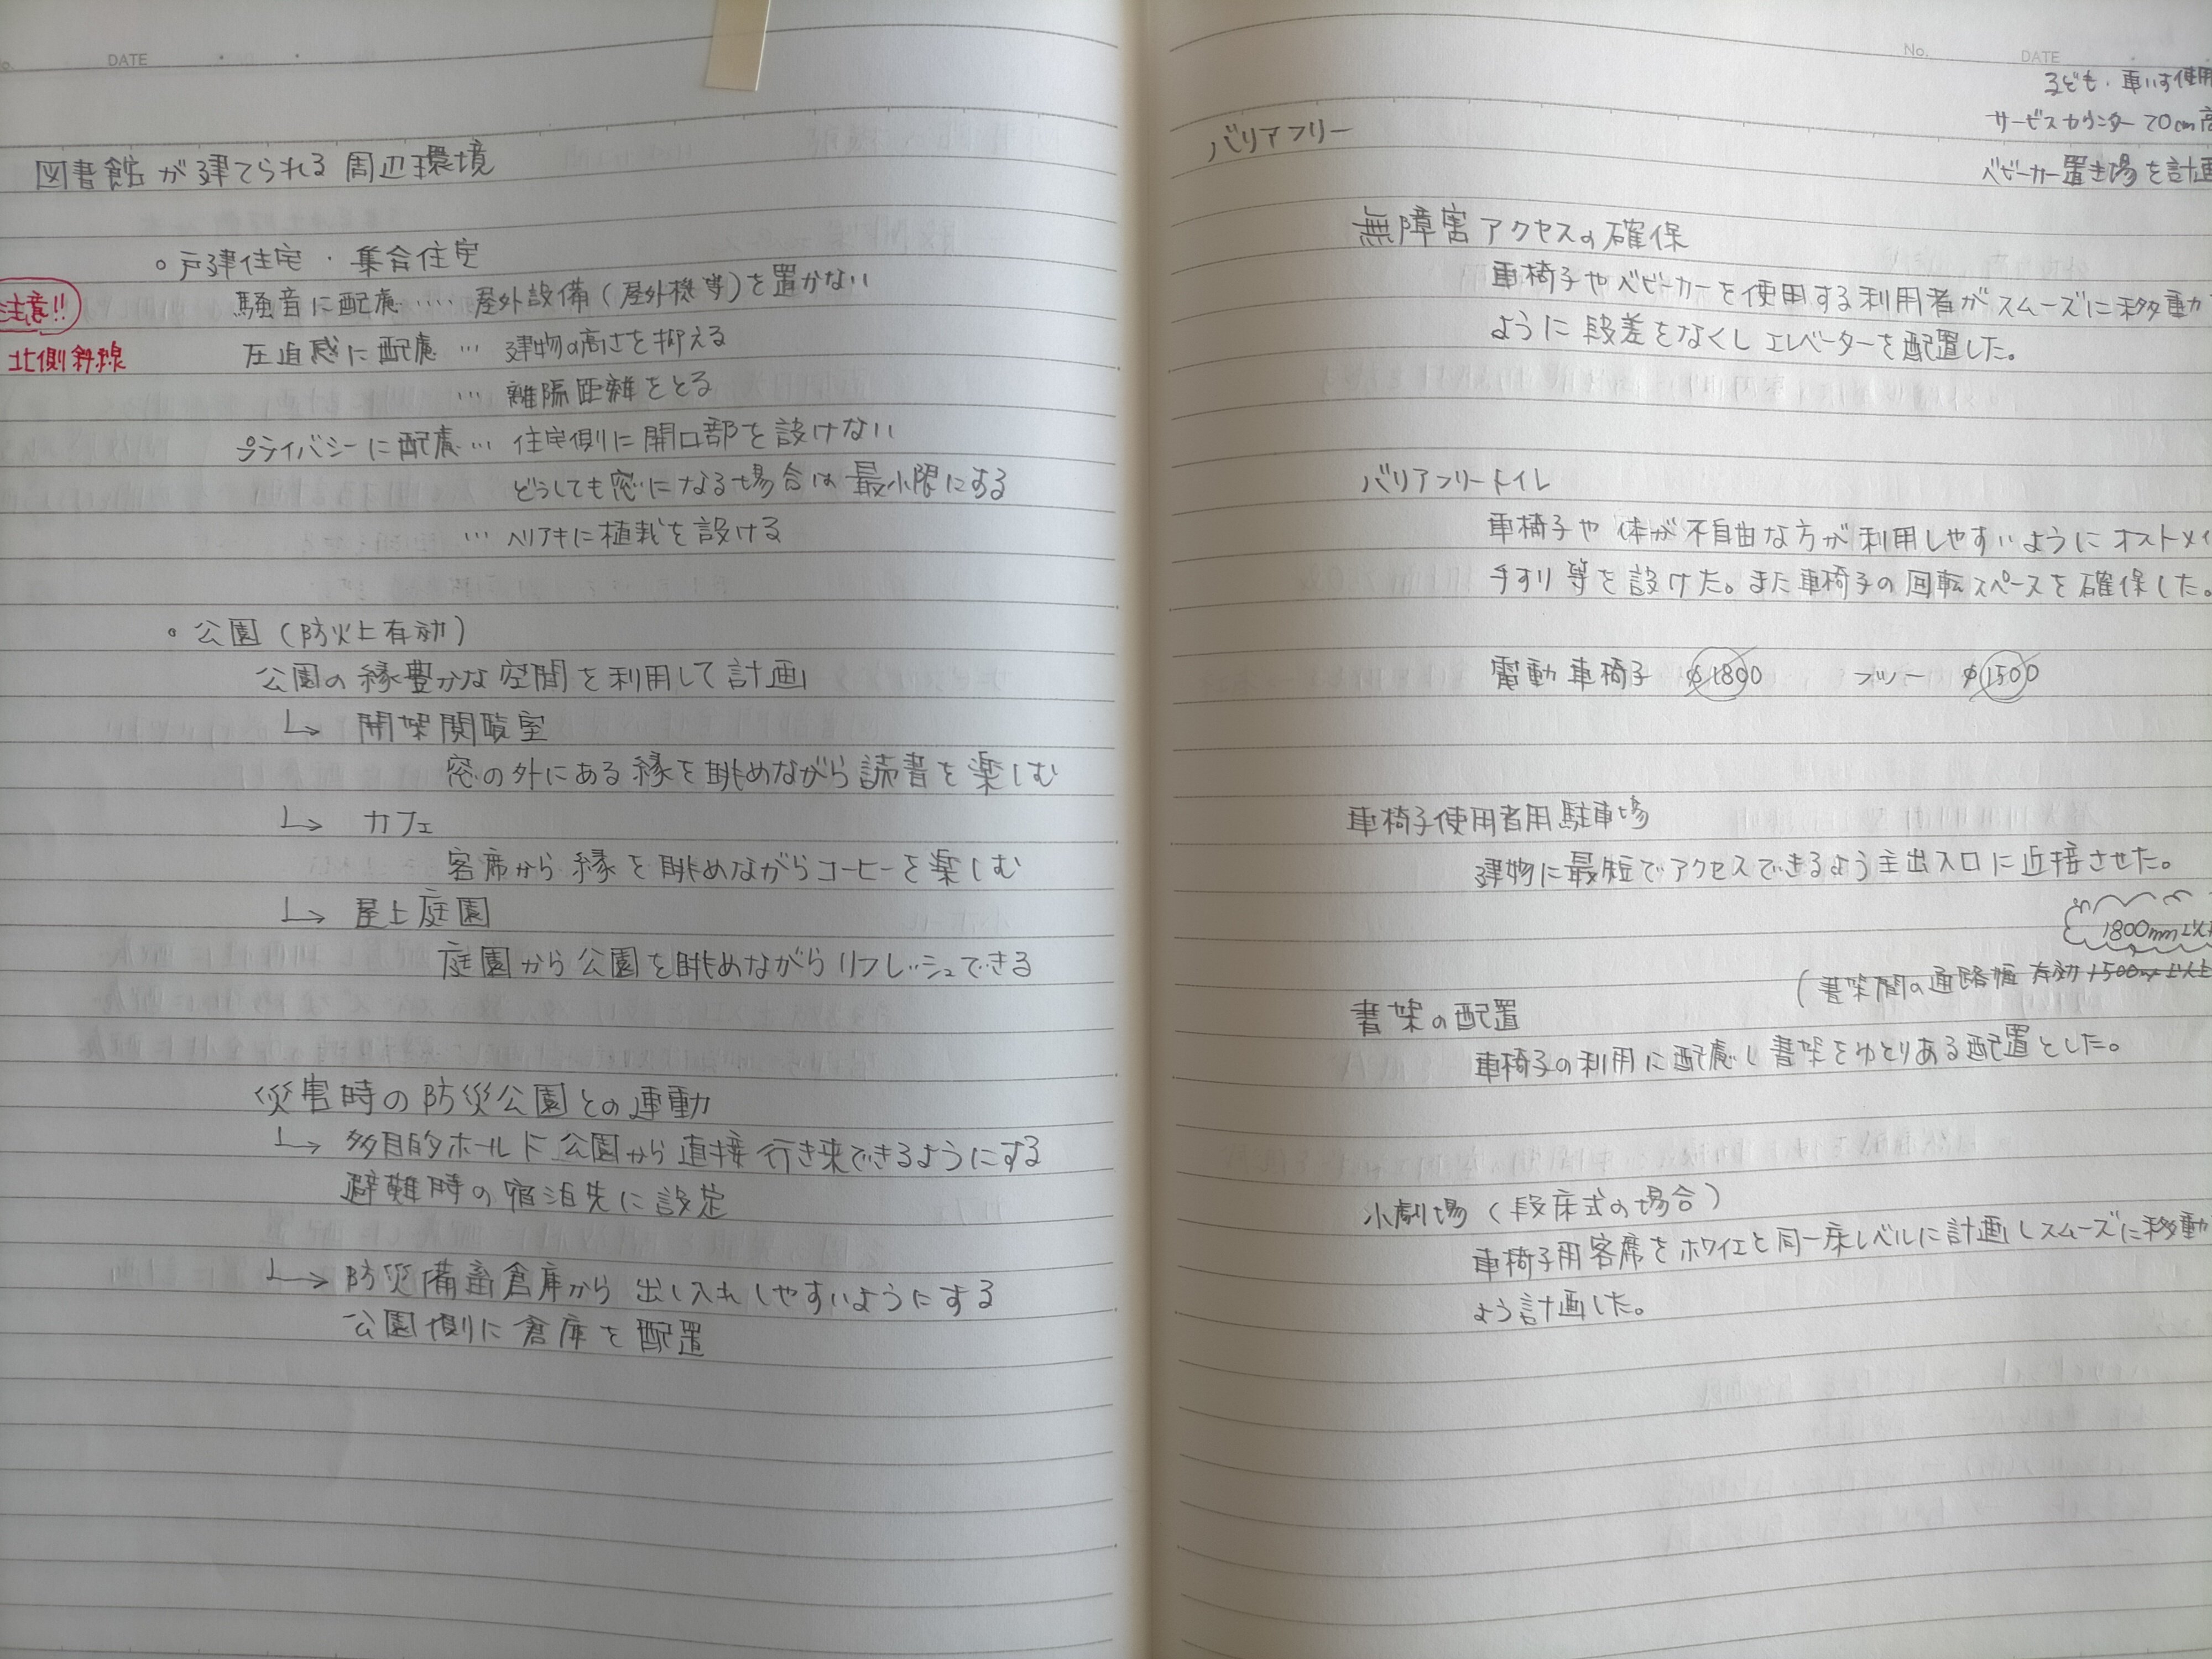 DATE
図書館が建てられる周辺環境
。戸建住宅・集合住宅
注意!!
騒音に配慮‥‥屋外設備(屋外機等)を置かない
北側斜線
圧迫感に配慮…建物の高さを抑える
…離隔距離をとる
プライバシーに配慮…住宅側に開口部を設けない
どうしても窓になる場合は最小限にする
…ヘリアキに植栽を設ける
。公園(防火上有効)
公園の緑豊かな空間を利用して計画
↳ 開架閲覧室
窓の外にある緑を眺めながら読書を楽しむ
↳ カフェ
客席から緑を眺めながらコーヒーを楽しむ
↳ 屋上庭園
庭園から公園を眺めながらリフレッシュできる
災害時の防災公園との連動
↳ 多目的ホールに公園から直接行き来できるようにする
避難時の宿泊先に設定
↳ 防災備蓄倉庫から出し入れしやすいようにする
公園側に倉庫を配置
No. DATE
子ども・車いす使用
サービスカウンター 70cm高
ベビーカー置き場を計画
バリアフリー
無障害アクセスの確保
車椅子やベビーカーを使用する利用者がスムーズに移動
ように段差をなくしエレベーターを配置した。
バリアフリートイレ
車椅子や体が不自由な方が利用しやすいようにオストメイ
手すり等を設けた。また車椅子の回転スペースを確保した。
電動車椅子 φ1800 フツー φ1500
車椅子使用者用駐車場
建物に最短でアクセスできるよう主出入口に近接させた。
1800mm以
(書架間の通路幅 有効 1500mm以上
書架の配置
車椅子の利用に配慮し書架をゆとりある配置とした。
小劇場(段床式の場合)
車椅子用客席をホワイエと同一床レベルに計画しスムーズに移動
よう計画した。